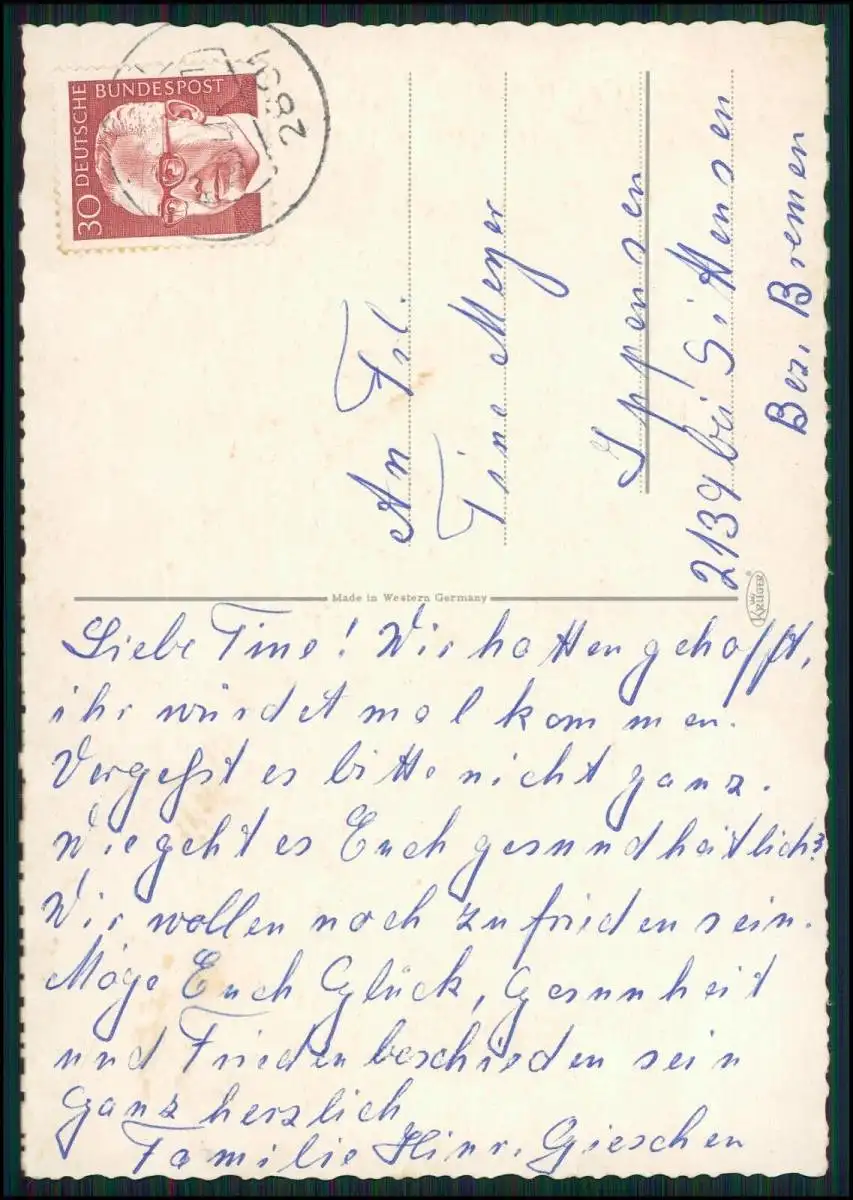 30 DEUTSCHE BUNDESPOST
An Frl.
Tine Meyer
Ippensen
2139 bei Sittensen
Bez. Bremen
Made in Western Germany
KRÜGER
Liebe Tine! Wir hatten gehofft,
ihr würdet mal kommen.
Vergeßt es bitte nicht ganz.
Wie geht es Euch gesundheitlich?
Wir wollen noch zufrieden sein.
Möge Euch Glück, Gesunheit
und Frieden beschieden sein
Ganz herzlich
Familie Hinr. Gieschen